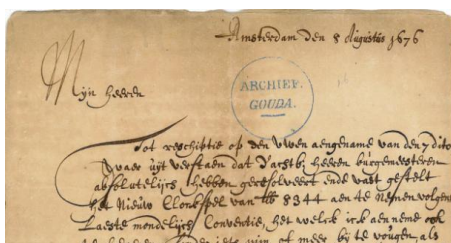 Amsterdam den 8 Augustus 1676
Mijn heeren
ARCHIEF.
GOUDA.
Tot rescriptie op den uwen aengename van den 7 dito
waer uijt verstaen dat d'acstb. heeren burgemeesteren
absolutelijck hebben geresolveert ende vast gestelt
het Nieuw Clockspel van lb 8344 aen te Nemen volgens
Laeste mondelijck Conventie, het welck ick aenneme
iets min of meer bij te vougen, als